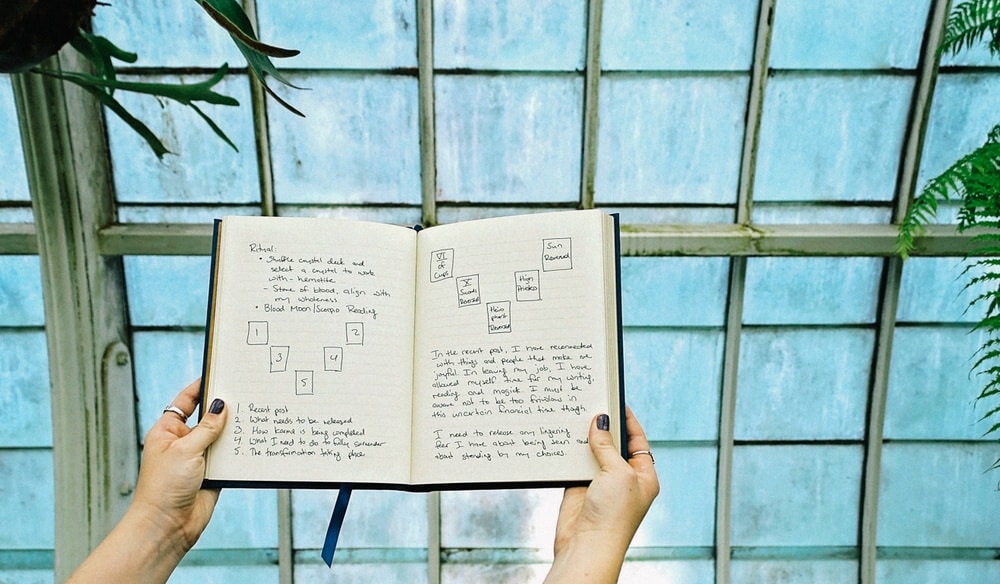 Ritual:
• Shuffle crystal deck and
select a crystal to work
with - hemotite
- Stone of blood, align with
my wholeness
• Blood Moon/Scorpio Reading
1
2
3
4
5
1. Recent past
2. What needs to be released
3. How karma is being completed
4. What I need to do to fully surrender
5. The transformation taking place
VI
of
Cups
X
Swords
Reversed
Hiero
phant
Reversed
High
Priestess
Sun
Reversed
In the recent past, I have reconnected
with things and people that make me
joyful. In leaving my job, I have
allowed myself time for my writing,
reading and magick. I must be
aware not to be too frivolous in
this uncertain financial time though.
I need to release any lingering
fear I have about being seen and
about standing by my choices.